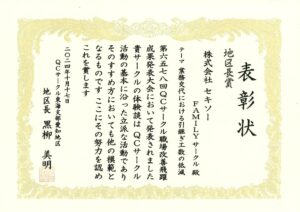 表彰状
地区長賞
株式会社 セキソー
FAMILYサークル殿
テーマ 業務交代における引継ぎ工数の低減
第六五七八回QCサークル職場改善飛躍
成果発表大会において発表されました
貴サークルの体験談はQCサークル
活動の基本に沿った立派な活動であり
そのすすめ方においても他の模範と
なるものです ここにその努力を認め
これを賞します
二〇二四年十月十七日
QCサークル東海支部愛知地区
地区長 黒柳 美明